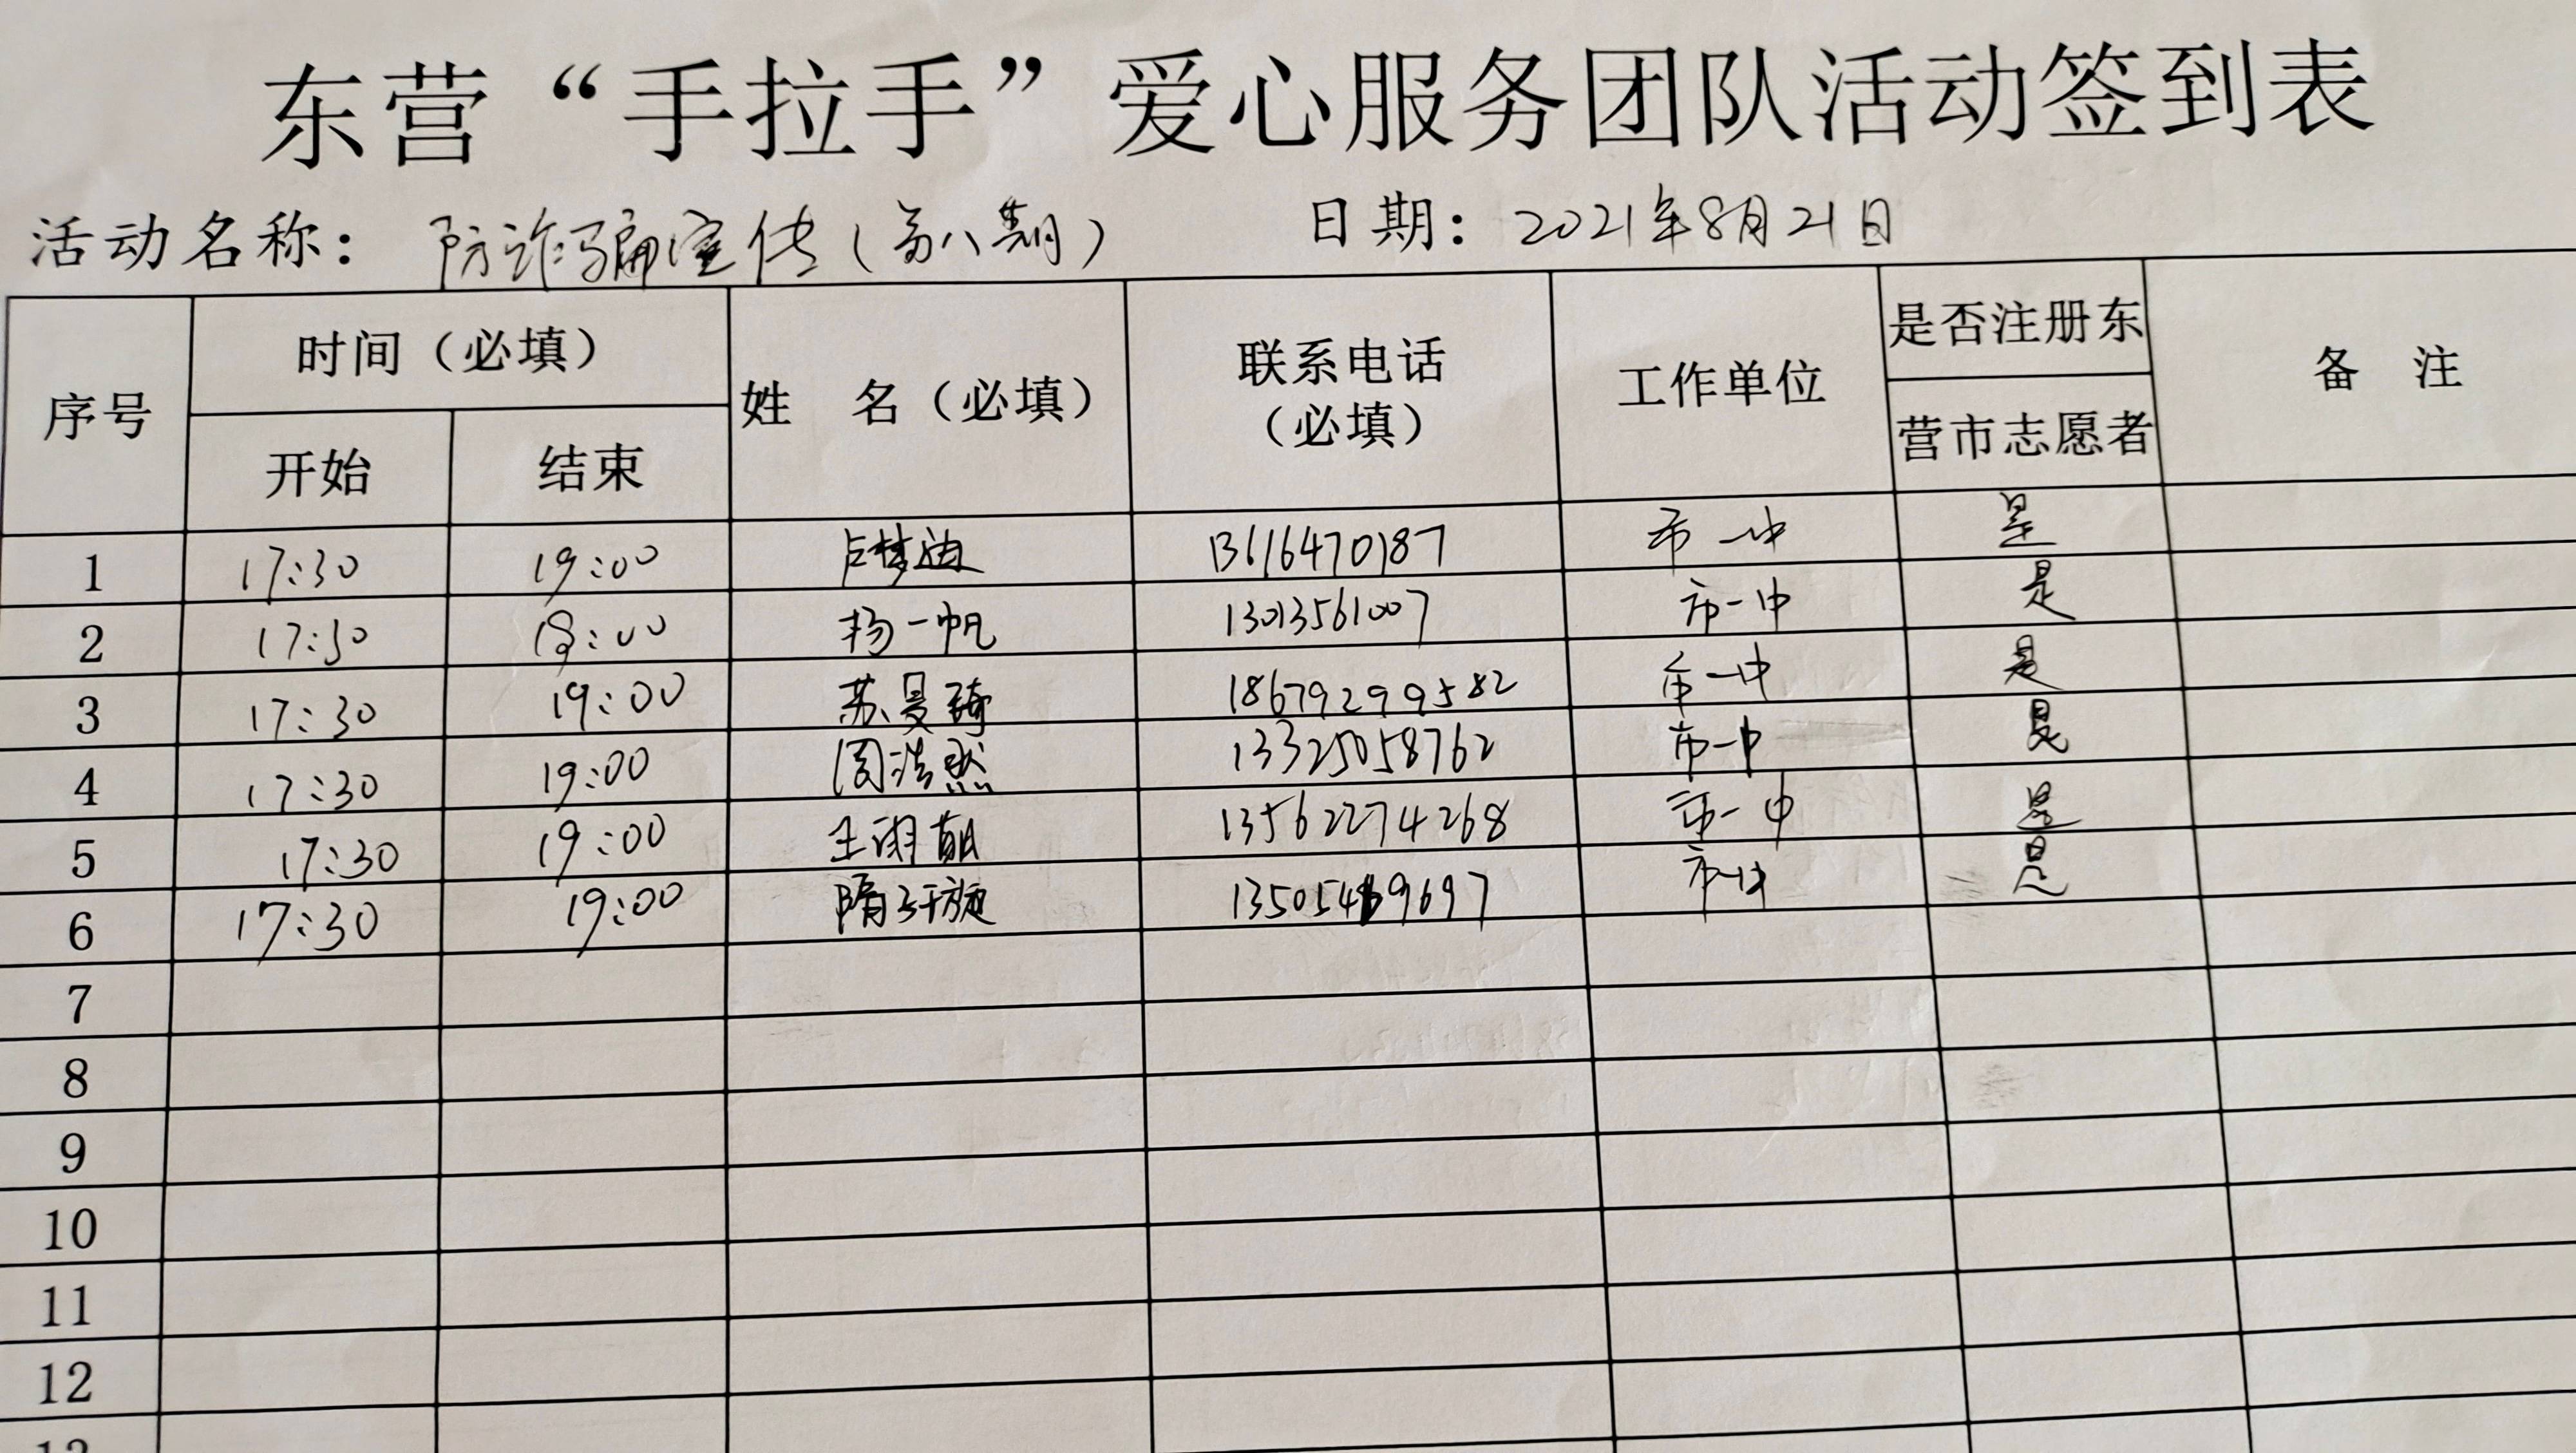 东营“手拉手”爱心服务团队活动签到表
活动名称：防诈骗宣传（第八期） 日期：2021年8月21日
序号 时间（必填） 姓 名（必填） 联系电话（必填） 工作单位 是否注册东营市志愿者 备 注
开始 结束
1 17:30 19:00 卢梦迪 13616470187 市一中 是
2 17:30 19:00 杨一帆 13013561007 市一中 是
3 17:30 19:00 苏曼琦 18679299582 市一中 是
4 17:30 19:00 周浩然 13325058762 市一中 是
5 17:30 19:00 王 13562274268 市一中 是
6 17:30 19:00 隋子旋 市一中 是
7
8
9
10
11
12